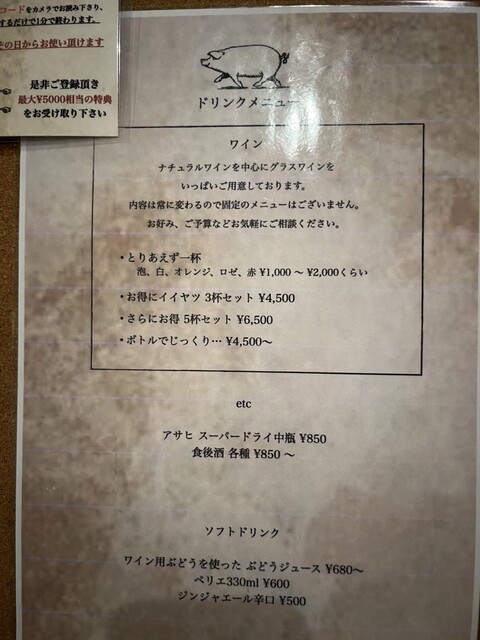 コードをカメラでお読み下さり、
するだけで1分で終わります。
その日からお使い頂けます
是非ご登録頂き
最大¥5000相当の特典
をお受け取り下さい
ドリンクメニュー
ワイン
ナチュラルワインを中心にグラスワインを
いっぱいご用意しております。
内容は常に変わるので固定のメニューはございません。
お好み、ご予算などお気軽にご相談ください。
・とりあえず一杯
泡、白、オレンジ、ロゼ、赤 ¥1,000 〜 ¥2,000くらい
・お得にイイヤツ 3杯セット ¥4,500
・さらにお得 5杯セット ¥6,500
・ボトルでじっくり… ¥4,500〜
etc
アサヒ スーパードライ中瓶 ¥850
食後酒 各種 ¥850 〜
ソフトドリンク
ワイン用ぶどうを使った ぶどうジュース ¥680〜
ペリエ330ml ¥600
ジンジャエール辛口 ¥500